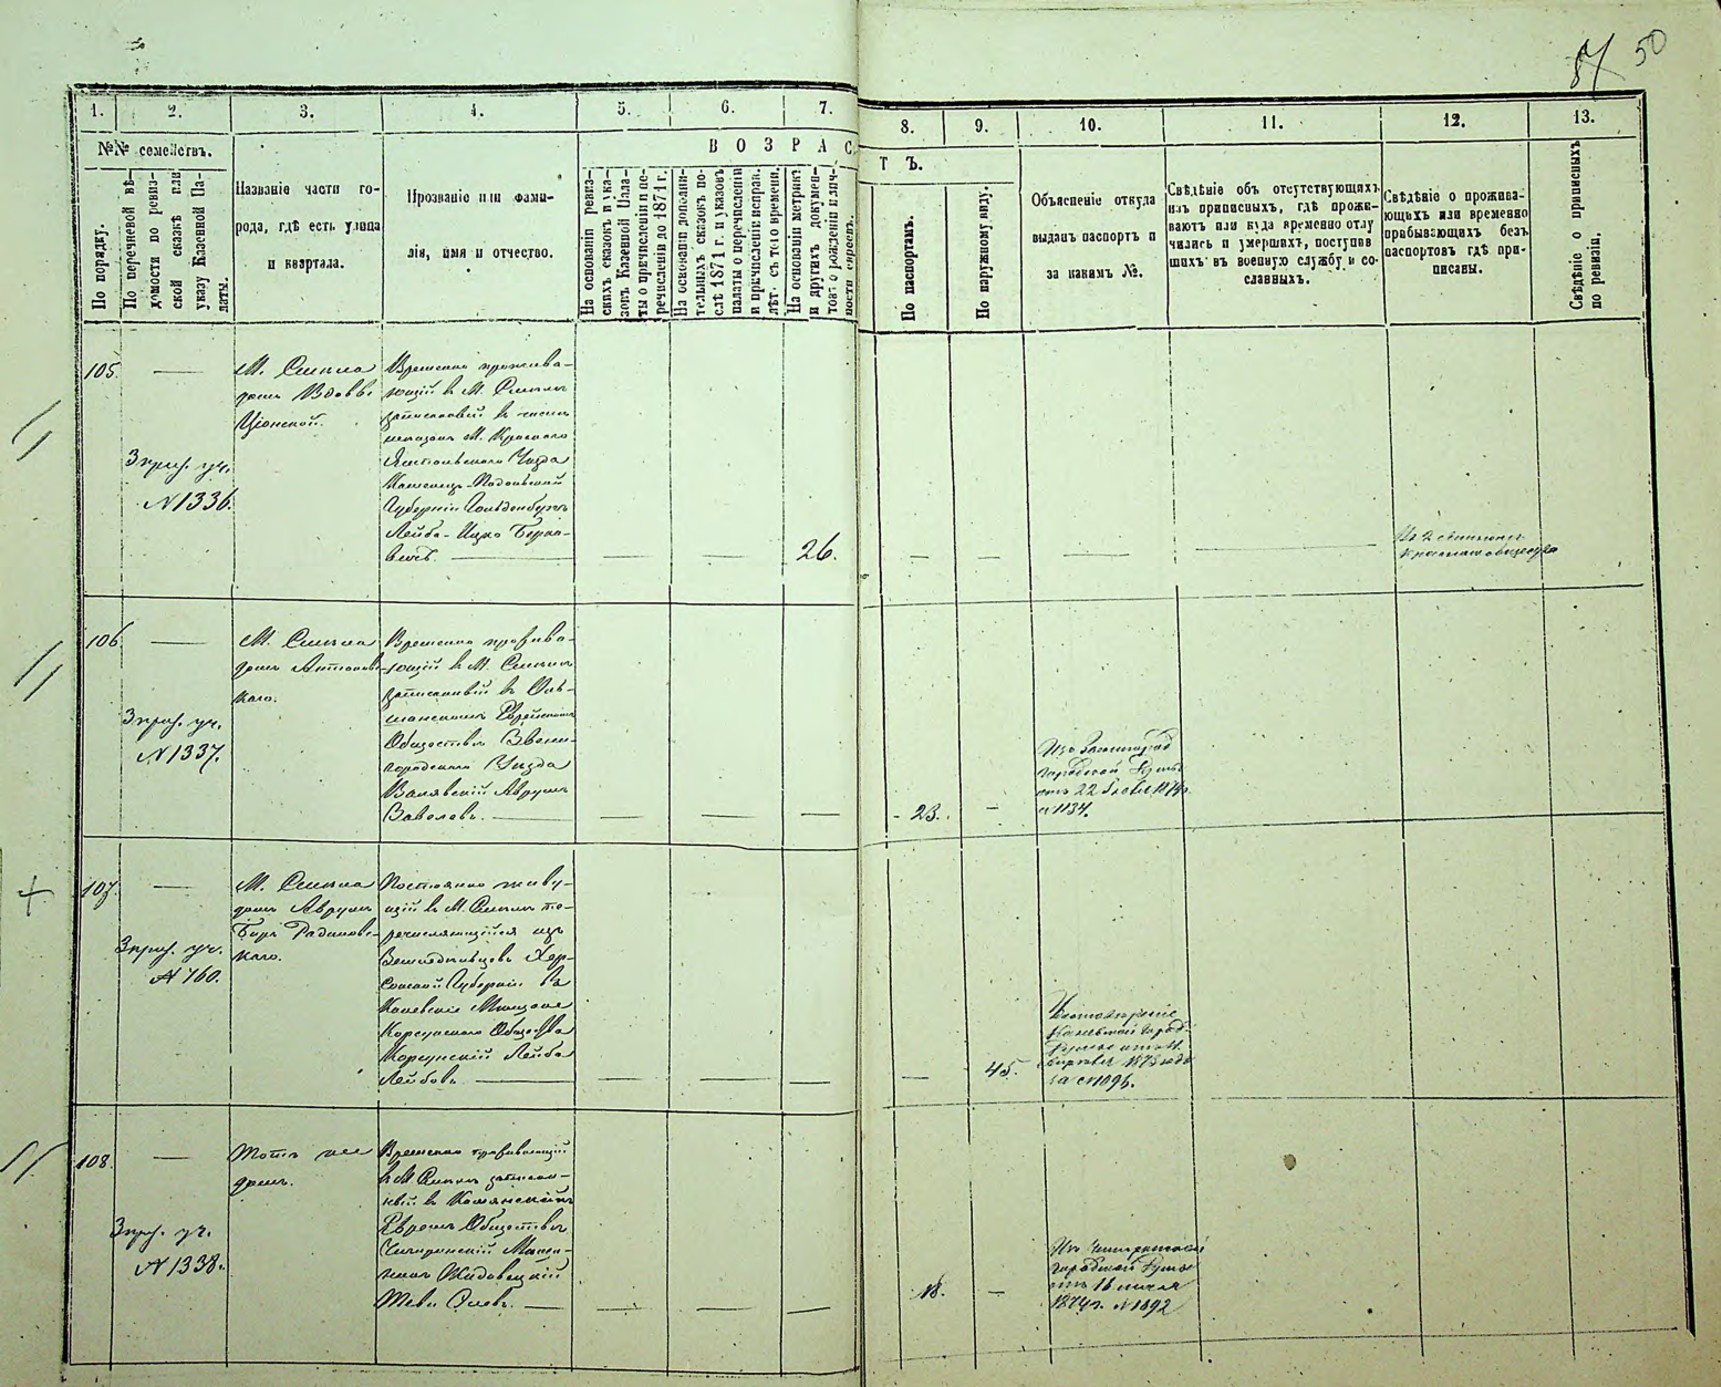 57 50
1. 2. 3. 4. 5. 6. 7. 8. 9. 10. 11. 12. 13.
№№ семействъ.
ВОЗРАСТЪ.
По порядку.
По перечневой вѣ-
домости по ревиз-
ской сказкѣ или
указу Казенной Па-
латы.
Названіе части го-
рода, гдѣ есть улица
и квартала.
Прозваніе или фами-
лія, имя и отчество.
На основаніи ревиз-
скихъ сказокъ и ука-
зовъ Казенной Пала-
ты о причисленіи и пе-
речисленіи до 1871 г.
На основаніи дополни-
тельныхъ сказокъ по-
слѣ 1871 г. и указовъ
палаты о перечисленіи
и причисленіи исправ.
лѣт. съ того времени.
На основаніи метрик.
и другихъ докумен-
товъ о рожденіи и лич-
ности спросъ.
По паспортамъ.
По наружному виду.
Объясненіе откуда
выданъ паспортъ и
за какимъ №.
Свѣдѣніе объ отсутствующихъ
изъ приписныхъ, гдѣ прожи-
ваютъ или куда временно отлу
чились и умершихъ, поступив
шихъ въ военную службу и со-
сланныхъ.
Свѣдѣніе о прожива-
ющихъ или временно
прибывающихъ безъ
паспортовъ гдѣ при-
писаны.
Свѣдѣніе о приписныхъ
по ревизіи.
105.
3 приз. уч.
№ 1336.
М. Смѣла
домъ Вдовы
Ціонской.
Временно прожива-
ющій въ М. Смѣлѣ
записанный въ
мѣщанъ М. Краснаго
Ямпольскаго Уѣзда
Каменецъ-Подольской
Губерніи Гольденбургъ
Лейба-Ицко Берко-
вичъ.
26.
106.
3 приз. уч.
№ 1337.
М. Смѣла
домъ Антоновс-
каго.
Временно прожива-
ющій въ М. Смѣлѣ
записанный въ Оль-
шанскомъ Еврейскомъ
Обществѣ Звени-
городскаго Уѣзда
Валявскій Аврумъ
Вавелевъ.
23.
городской Думы
отъ 22 1874 г.
№ 1134.
107.
3 приз. уч.
№ 760.
М. Смѣла
домъ Аврумъ
Беръ Радиловс-
каго.
Постоянно живу-
щій въ М. Смѣлѣ пе-
речисляющійся изъ
Земледѣльцевъ Хер-
сонской Губерніи въ
Каневскіе Мѣщане
Корсунскаго Общества
Корсунскій Лейба
Лейбовъ.
45.
Каневской Город.
за № 1096.
108.
3 приз. уч.
№ 1338.
Тотъ же
домъ.
Временно проживающій
въ М Смѣлѣ записан-
ный въ
Евреевъ Обществѣ
Чигиринскій Мѣща-
нинъ Жидовецкій
18.
Изъ Чигиринской
городской Думы
отъ 16
1874 г. № 1892